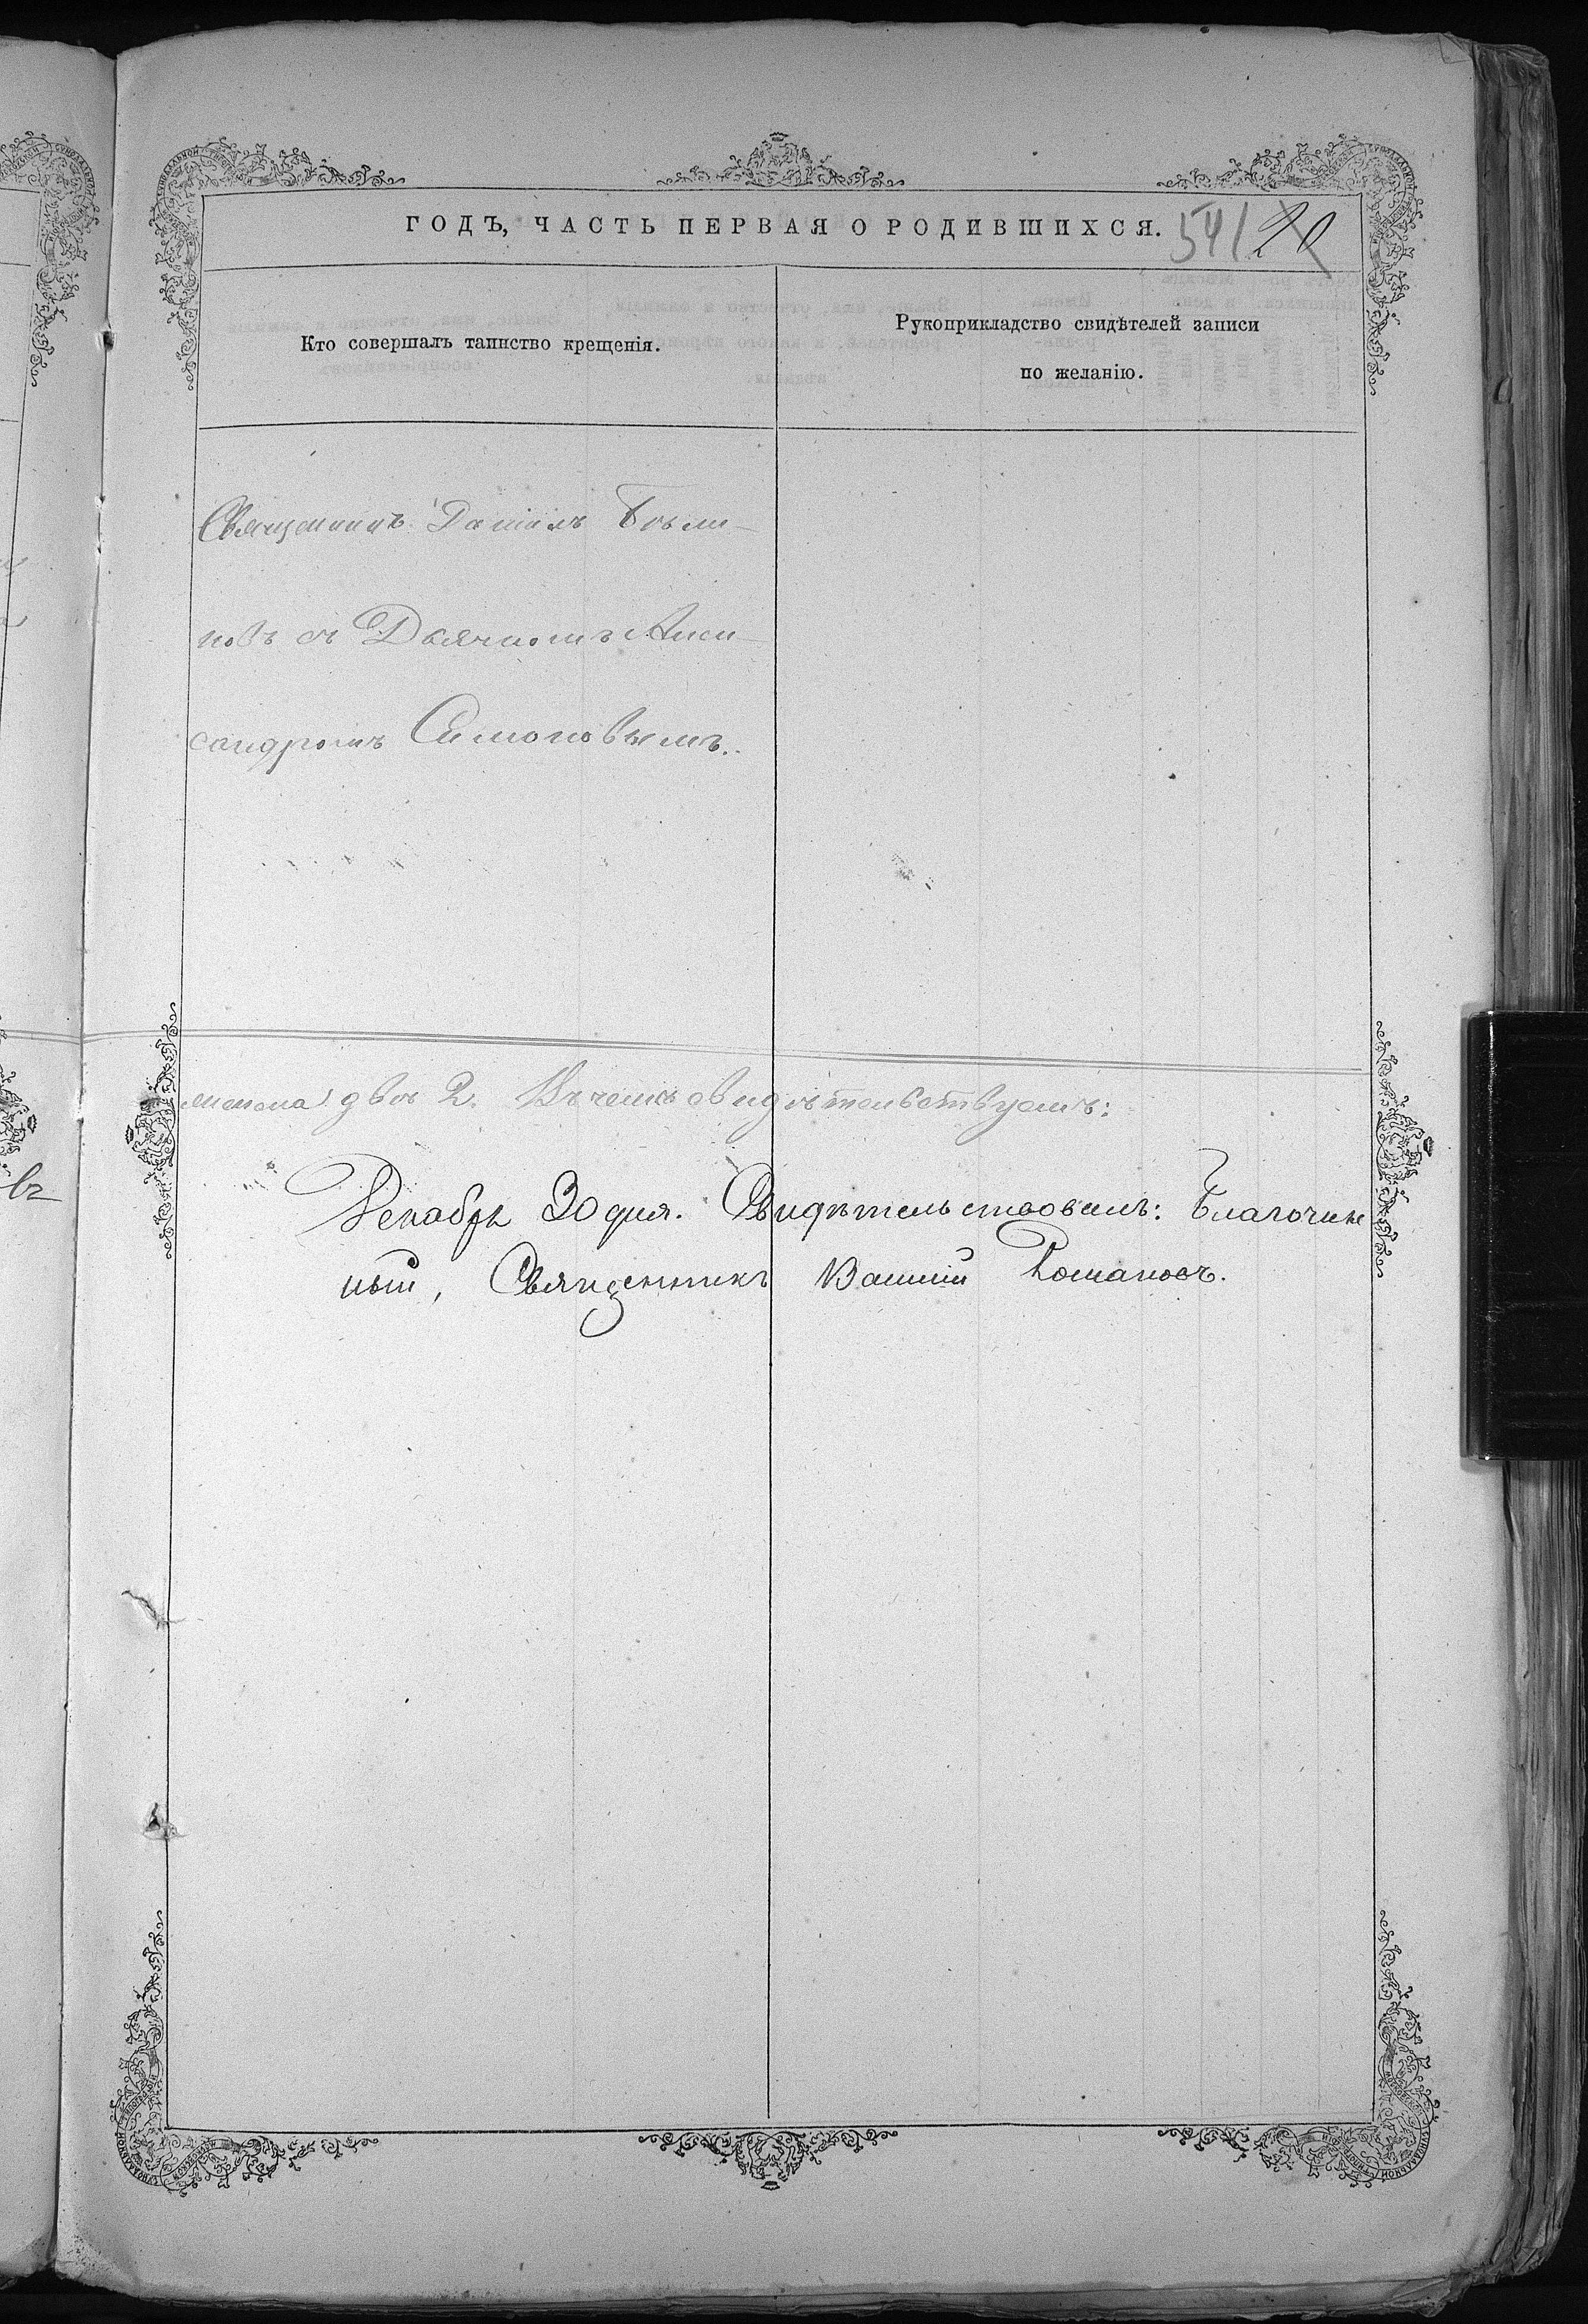 ГОДЪ, ЧАСТЬ ПЕРВАЯ О РОДИВШИХСЯ. 541 20
Кто совершалъ таинство крещенія.
Рукоприкладство свидѣтелей записи
по желанію.
Священникъ Даніилъ Были-
новъ съ Дьячкомъ Алек
сандромъ Симоновымъ.
двѣ 2. Въ чемъ свидѣтельствуемъ:
Декабрь 30 дня. Свидѣтельствовалъ: Благочин
ный, Священникъ Романовъ.